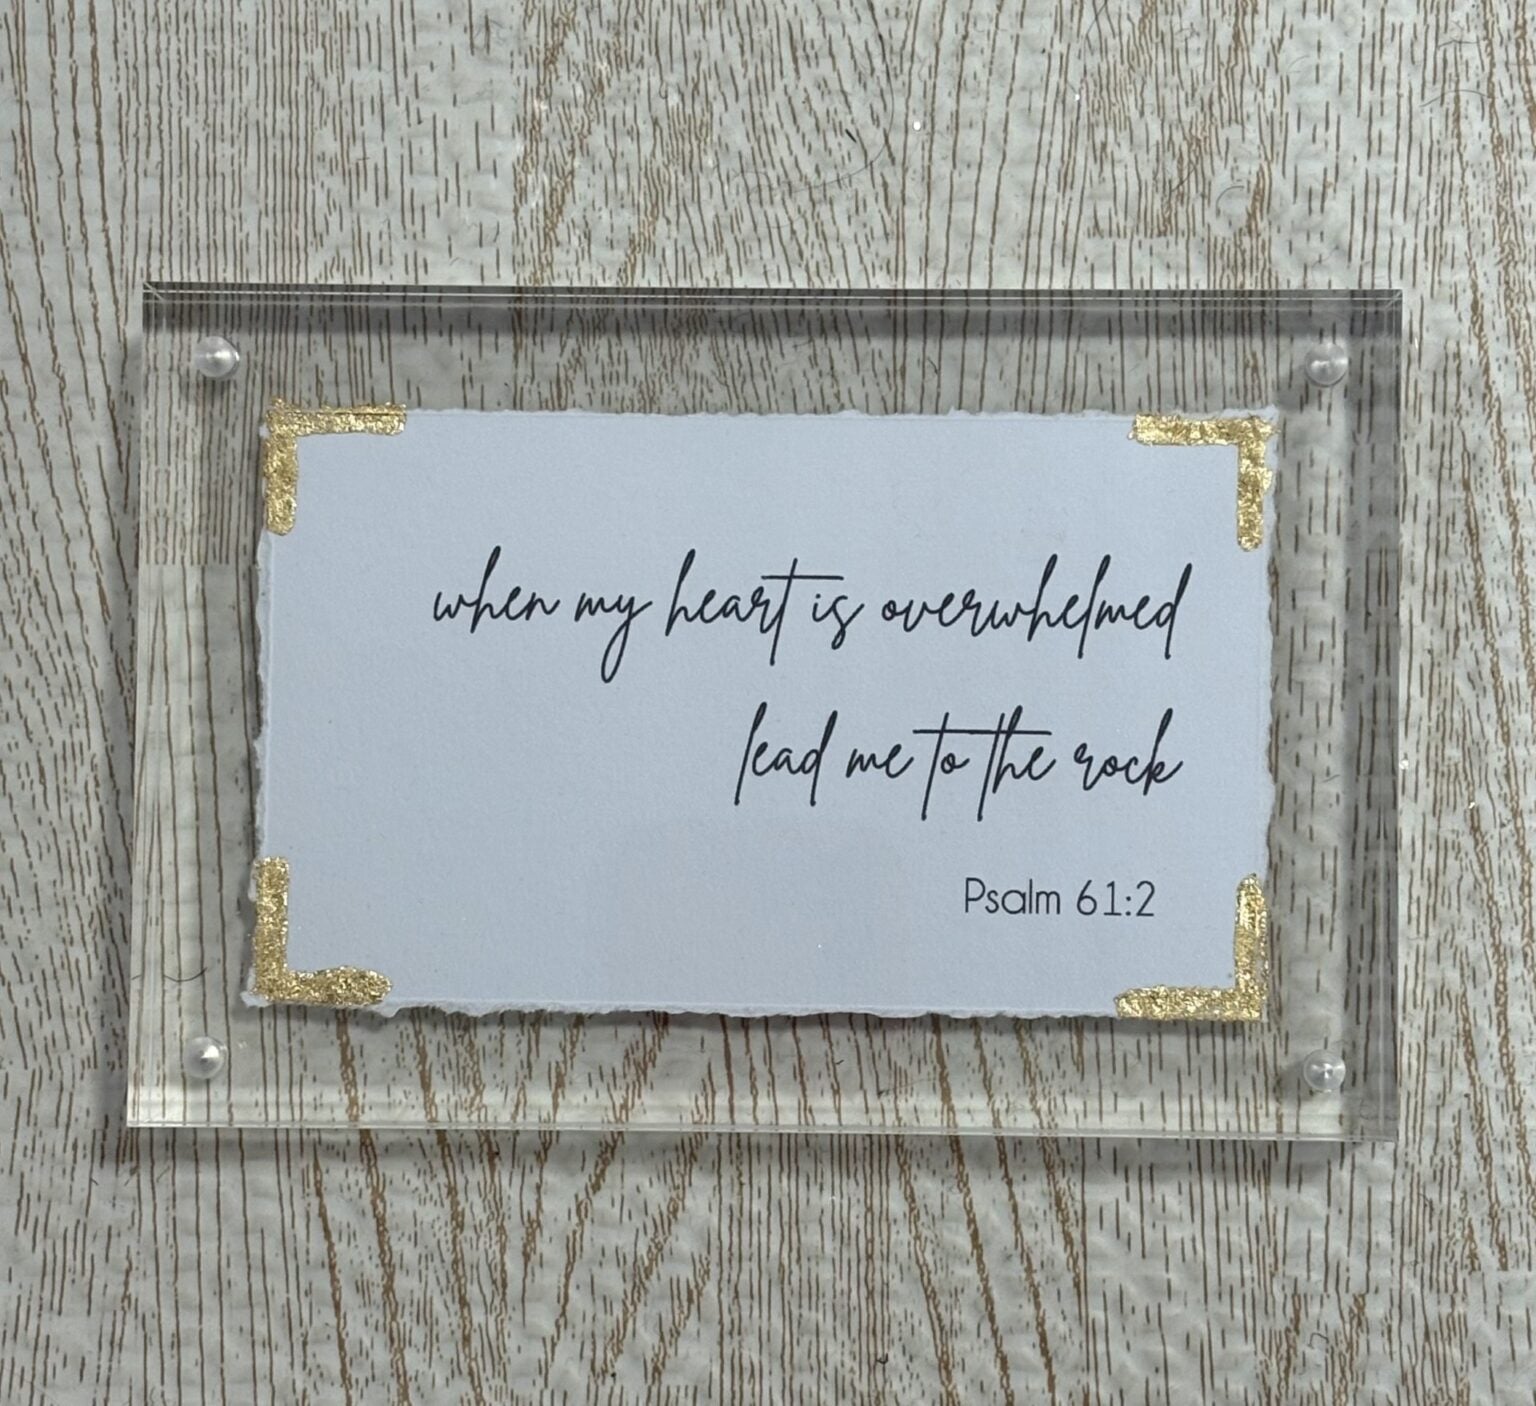 when my heart is overwhelmed
lead me to the rock
Psalm 61:2